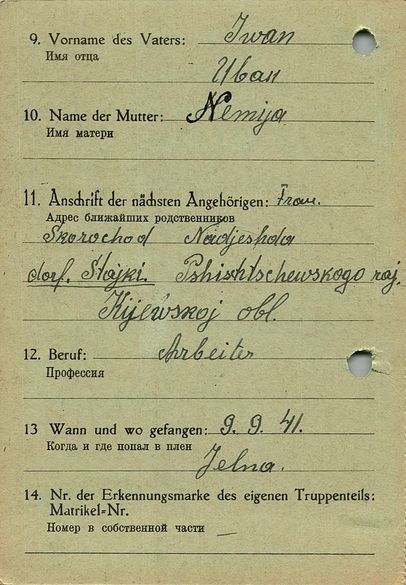 9. Vorname des Vaters: Iwan
Имя отца
Иван
10. Name der Mutter: Nemija
Имя матери
11. Anschrift der nächsten Angehörigen: Frau.
Адрес ближайших родственников
Skorochod Nadjeshda
dorf. Stajki. raj.
Kijewskoj obl.
12. Beruf: Arbeiter
Профессия
13 Wann und wo gefangen: 9. 9. 41.
Когда и где попал в плен
Jelna.
14. Nr. der Erkennungsmarke des eigenen Truppenteils:
Matrikel-Nr.
Номер в собственной части —